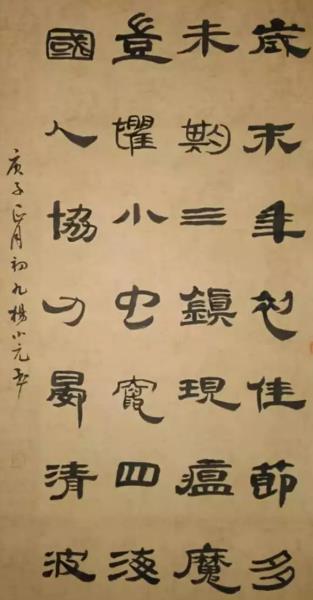 歲末年初佳節多
未期三鎮現瘟魔
豈懼小虫寇四海
國人協力晏清波
庚子正月初九楊小元書